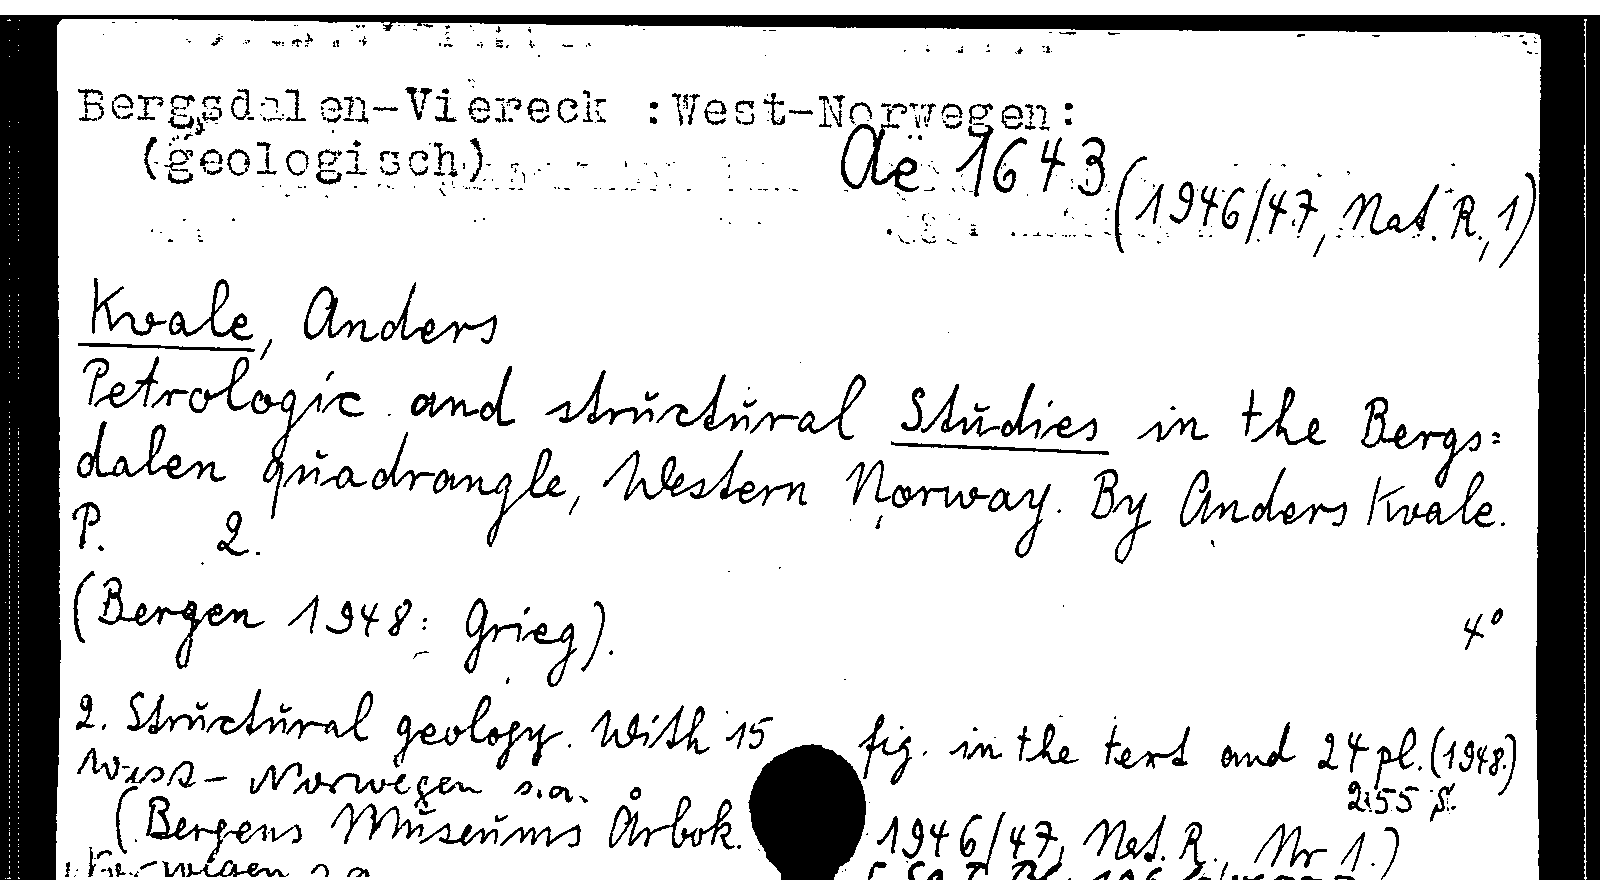 Bergsdalen-Viereck :West-Norwegen:
(geologisch)
Aë 1643 (1946/47, Nat. R., 1)
Kvale, Anders
Petrologic and structural Studies in the Bergs=
dalen quadrangle, Western Norway. By Anders Kvale.
P. 2.
(Bergen 1948: Grieg). 4°
2. Structural geology. With 15 fig. in the text and 24 pl. (1948.)
West-Norwegen s.a. 255 S.
(Bergens Museums Årbok. 1946/47, Nat. R., Nr 1.)
Norwegen s.a.